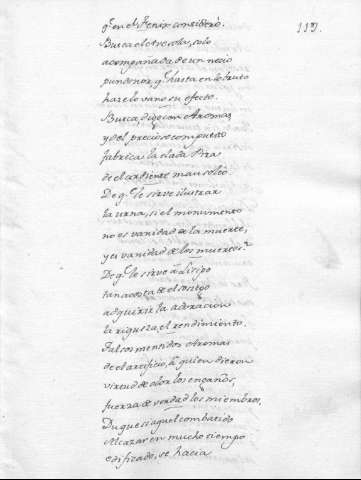 119.
q.e en el Fenix considero.
Busca el otro sola, solo
acompañada de un necio
pundonor, q.e hasta en lo bruto
haze lo vano su efecto.
Busca, digo con Aromas,
y del precioso compuesto
fabrica la elada Pira
de el ardiente mausoleo
De q.e le sirve ilustrar
la urna, si el monumento
no es vanidad de la muerte,
y es vanidad de los muertos?
De q.e le sirve à Lisipo
tan acosta de el sosiego
adquirir la adoracion
la riqueza, el rendimiento.
Falsos mentidos Aromas
de el artificio, à quien dieron
virtud de olor los engaños,
fuerza de verdad los miembros,
Du que si aquel combatido
Alcazar en mucho tiempo
edificado, se hacia